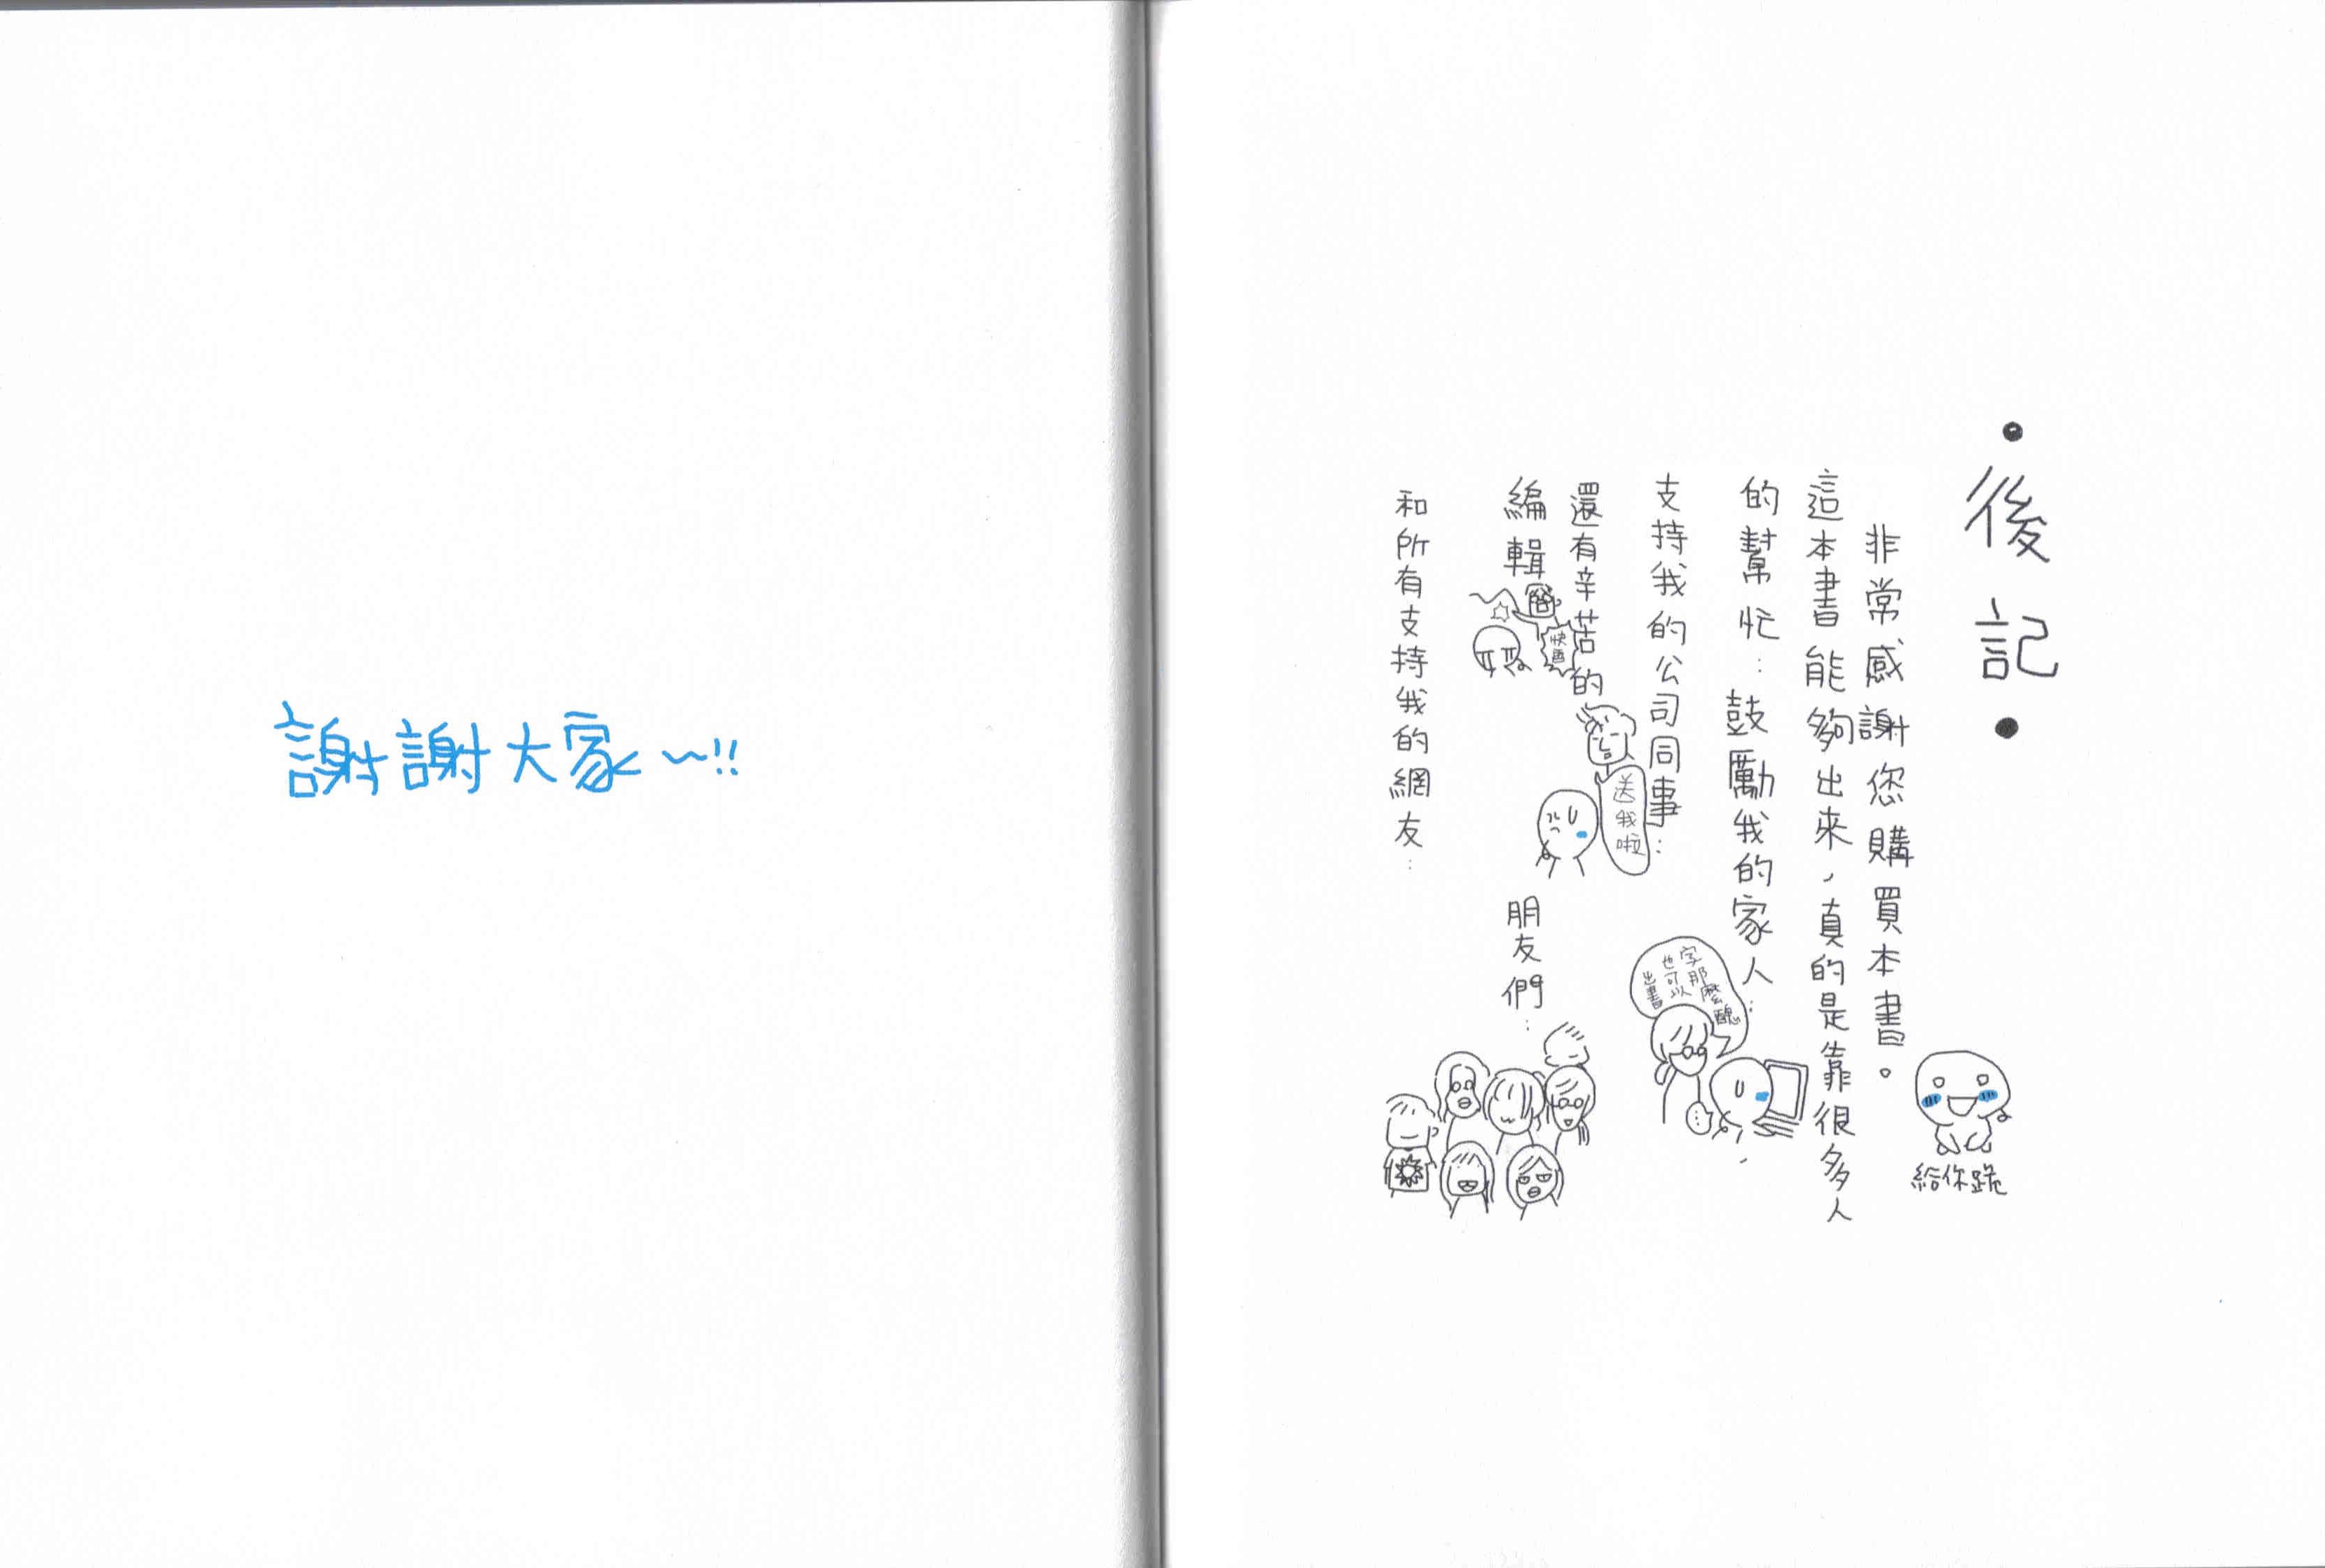 •後記•
非常感謝您購買本書。
給你跪
這本書能夠出來，真的是靠很多人
的幫忙：鼓勵我的家人：
字那麼醜
也可以
出書
支持我的公司同事：
送我啦
還有辛苦的
編輯
快畫
朋友們：
和所有支持我的網友：
謝謝大家~!!